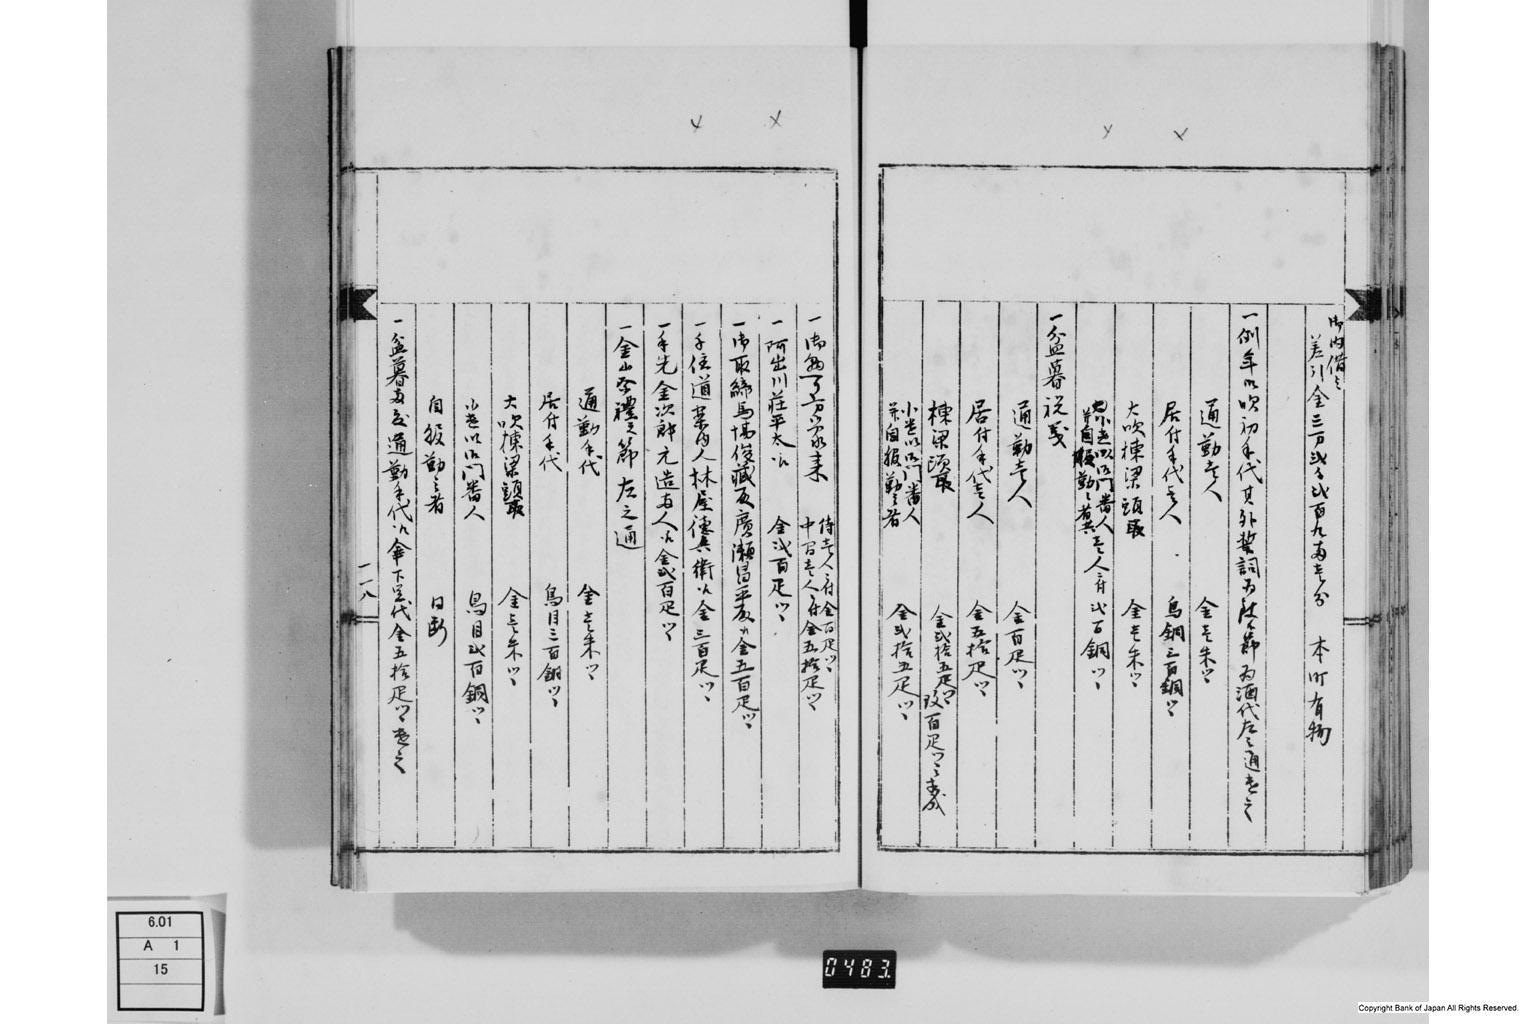 御内借之
差引金三万弐千弐百九両壱分 本町有物
一例年御吹初手代其外誓詞為致候節為酒代左之通遣之
通勤壱人 金壱朱ツヽ
居付手代壱人 鳥銅三百銅ツヽ
大吹棟梁頭取 金壱朱ツヽ
小遣御門番人
并自服勤之者共壱人ニ付弐百銅ツヽ
一盆暮祝義
通勤壱人 金百疋ツヽ
居付手代壱人 金五拾疋ツヽ
棟梁頭取 金弐拾五疋ツヽ 改百疋ツヽニ成
小遣御門番人
并自服勤之者 金弐拾五疋ツヽ
一御勘定方家来 侍壱人ニ付金百疋ツヽ
中間壱人ニ付金五拾疋ツヽ
一阿出川荘平太江 金弐百疋ツヽ
一御取締馬場俊蔵殿廣瀬昌平殿江金五百疋ツヽ
一千住道案内人林屋徳兵衛江金三百疋ツヽ
一手先金次郎元造両人江金弐百疋ツヽ
一金山祭禮之節左之通
通勤手代 金壱朱ツヽ
居付手代 鳥目三百銅ツヽ
大吹棟梁頭取 金壱朱ツヽ
小遣御門番人 鳥目弐百銅ツヽ
自服勤之者 同断
一盆暮両度通勤手代江傘下駄代金五拾疋ツヽ遣之
一一八
6.01
A 1
15
0483.
Copyright Bank of Japan All Rights Reserved.